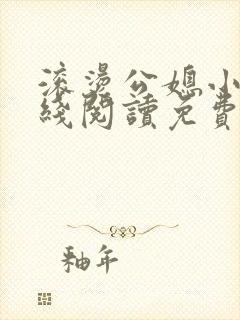 滚烫公媳小
綫閱讀免費
釉年